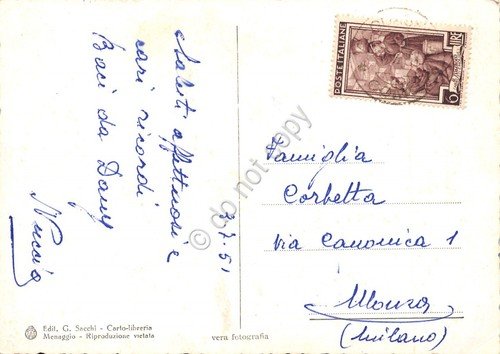 Saluti affettuosi e
cari ricordi
Baci da Dany
Nuccia
3.7.51
POSTE ITALIANE
LIRE
6
Famiglia
Corbetta
Via Canonica 1
Monza
(Milano)
do not copy
Edit. G. Sacchi - Carto-libreria
Menaggio - Riproduzione vietata
vera fotografia